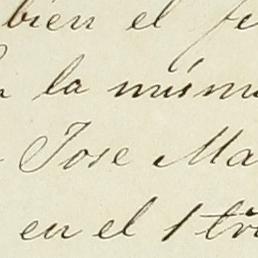 bien el
la misma
Jose Ma
en el 1